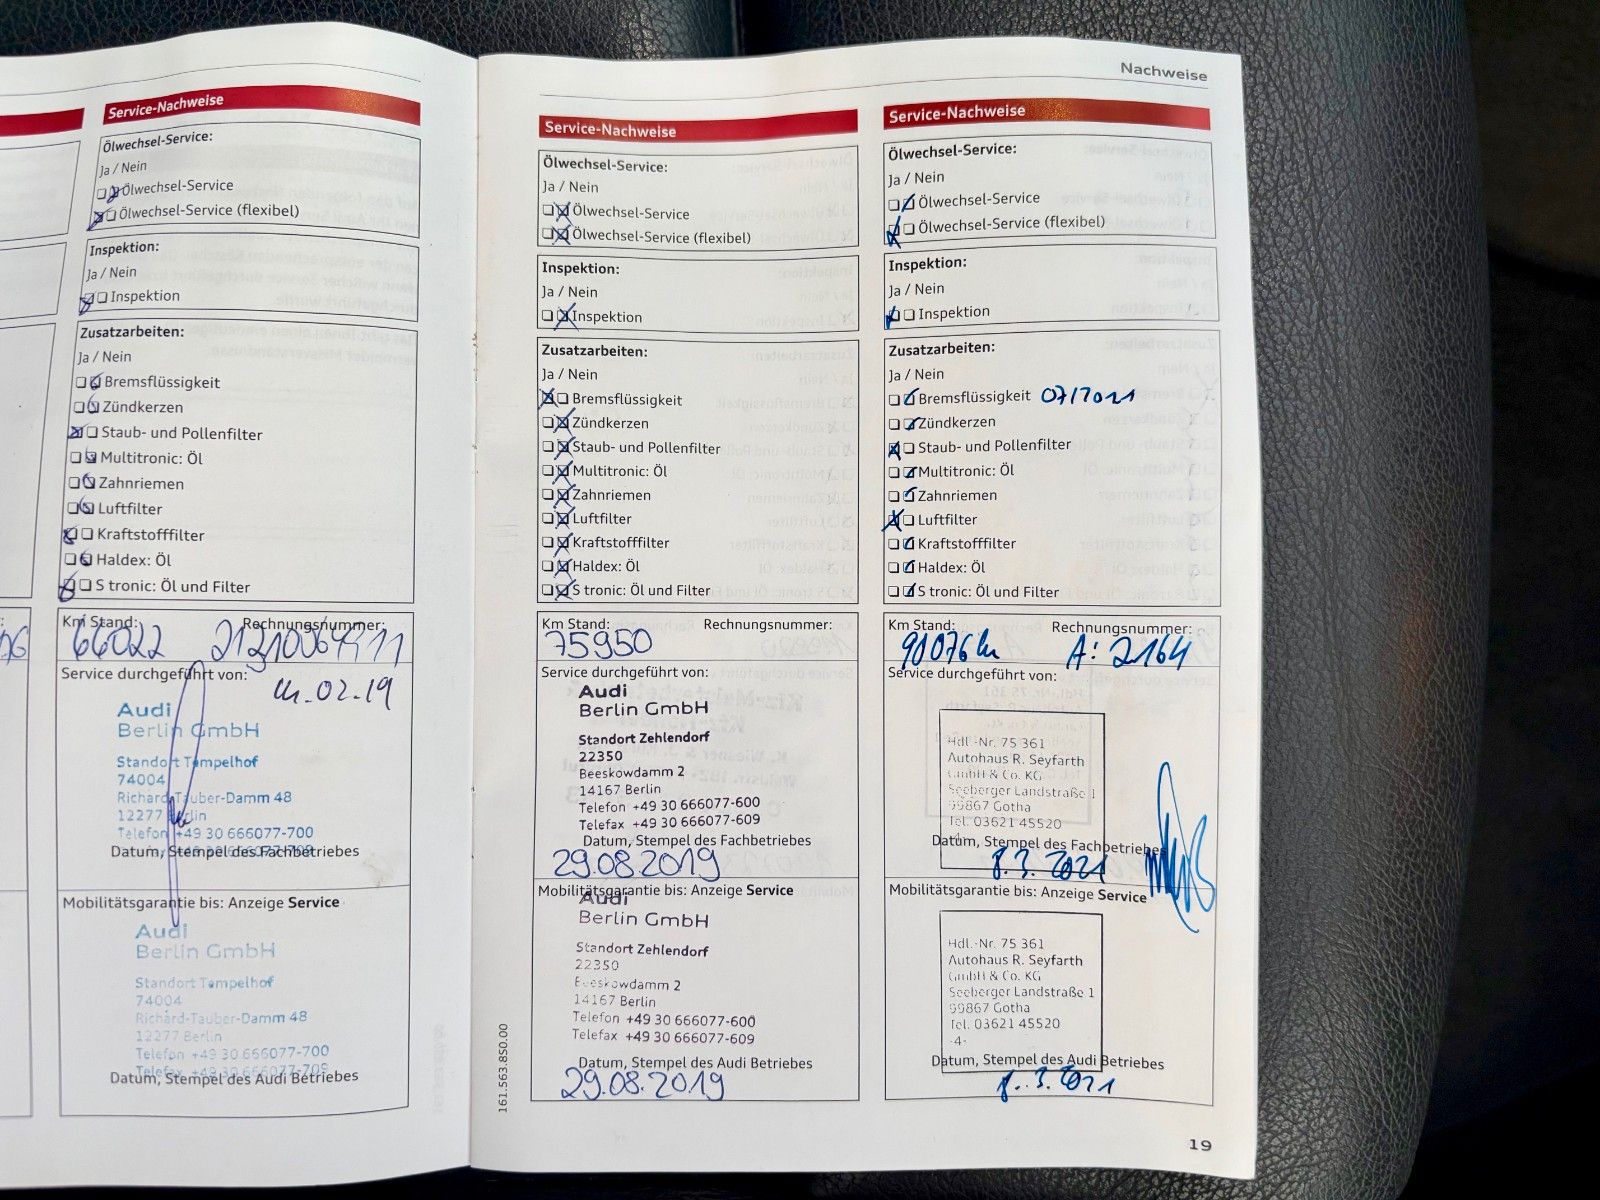 Nachweise
Service-Nachweise
Ölwechsel-Service:
Ja / Nein
Ölwechsel-Service
Ölwechsel-Service (flexibel)
Inspektion:
Ja / Nein
Inspektion
Zusatzarbeiten:
Ja / Nein
Bremsflüssigkeit
Zündkerzen
Staub- und Pollenfilter
Multitronic: Öl
Zahnriemen
Luftfilter
Kraftstofffilter
Haldex: Öl
S tronic: Öl und Filter
Km Stand: Rechnungsnummer:
66022
Service durchgeführt von:
02.19
Audi
Berlin GmbH
Standort Tempelhof
74004
Richard-Tauber-Damm 48
12277 Berlin
Telefon +49 30 666077-700
Datum, Stempel des Fachbetriebes
Mobilitätsgarantie bis: Anzeige Service
Audi
Berlin GmbH
Standort Tempelhof
74004
Richard-Tauber-Damm 48
12277 Berlin
Telefon +49 30 666077-700
Datum, Stempel des Audi Betriebes
Service-Nachweise
Ölwechsel-Service:
Ja / Nein
Ölwechsel-Service
Ölwechsel-Service (flexibel)
Inspektion:
Ja / Nein
Inspektion
Zusatzarbeiten:
Ja / Nein
Bremsflüssigkeit
Zündkerzen
Staub- und Pollenfilter
Multitronic: Öl
Zahnriemen
Luftfilter
Kraftstofffilter
Haldex: Öl
S tronic: Öl und Filter
Km Stand: Rechnungsnummer:
75950
Service durchgeführt von:
Audi
Berlin GmbH
Standort Zehlendorf
22350
Beeskowdamm 2
14167 Berlin
Telefon +49 30 666077-600
Telefax +49 30 666077-609
Datum, Stempel des Fachbetriebes
29.08.2019
Mobilitätsgarantie bis: Anzeige Service
Audi
Berlin GmbH
Standort Zehlendorf
22350
Beeskowdamm 2
14167 Berlin
Telefon +49 30 666077-600
Telefax +49 30 666077-609
Datum, Stempel des Audi Betriebes
29.08.2019
161.563.850.00
Service-Nachweise
Ölwechsel-Service:
Ja / Nein
Ölwechsel-Service
Ölwechsel-Service (flexibel)
Inspektion:
Ja / Nein
Inspektion
Zusatzarbeiten:
Ja / Nein
Bremsflüssigkeit 07/2021
Zündkerzen
Staub- und Pollenfilter
Multitronic: Öl
Zahnriemen
Luftfilter
Kraftstofffilter
Haldex: Öl
S tronic: Öl und Filter
Km Stand: Rechnungsnummer:
90076 km A: 2164
Service durchgeführt von:
Hdl.-Nr. 75 361
Autohaus R. Seyfarth
GmbH & Co. KG
Seeberger Landstraße 1
99867 Gotha
Tel. 03621 45520
-4-
Datum, Stempel des Fachbetriebes
8.3.2021
Mobilitätsgarantie bis: Anzeige Service
Hdl.-Nr. 75 361
Autohaus R. Seyfarth
GmbH & Co. KG
Seeberger Landstraße 1
99867 Gotha
Tel. 03621 45520
-4-
Datum, Stempel des Audi Betriebes
8.3.2021
19